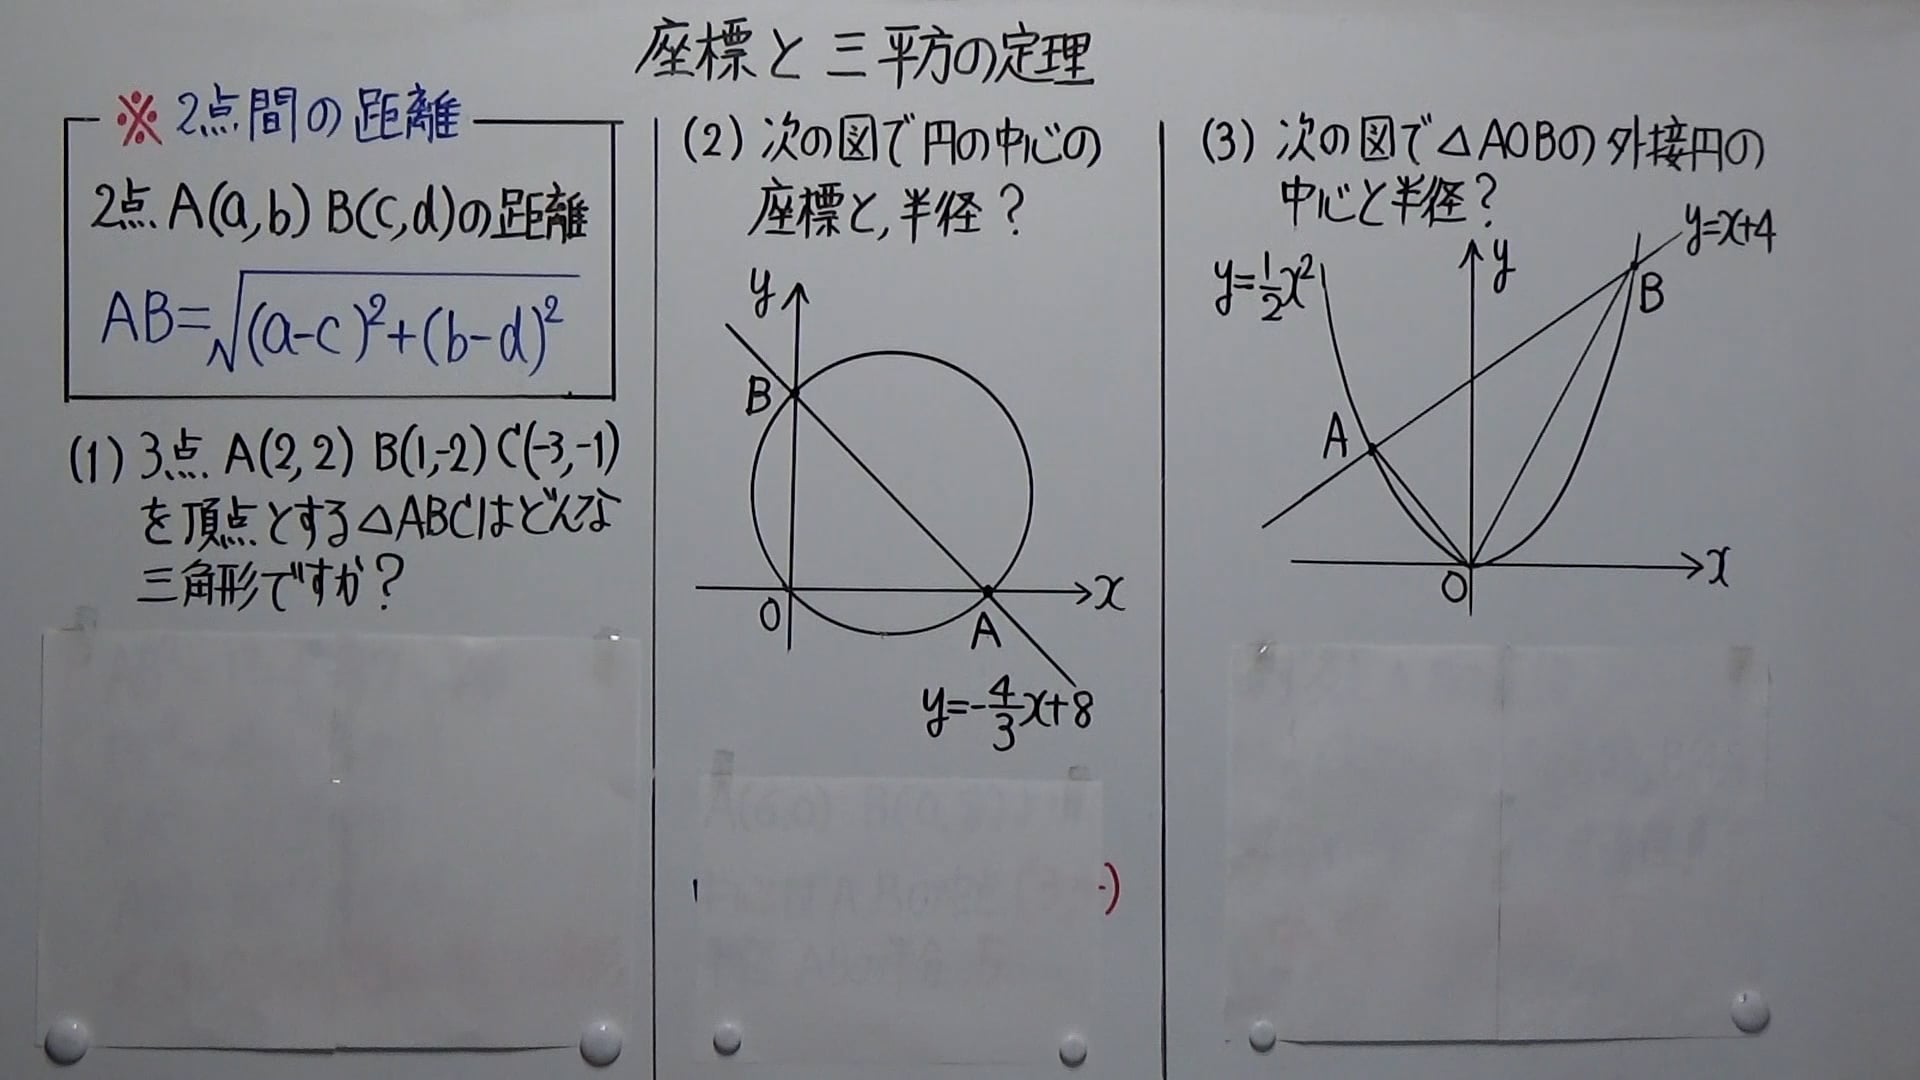 座標と三平方の定理
※2点間の距離
2点 A(a,b) B(c,d)の距離
AB=√(a-c)²+(b-d)²
(1) 3点 A(2,2) B(1,-2) C(-3,-1)
を頂点とする△ABCはどんな
三角形ですか?
(2) 次の図で円の中心の
座標と,半径?
y
B
O
A
x
y=-4/3x+8
)
(3) 次の図で△AOBの外接円の
中心と半径?
y=x+4
y=1/2x²
y
B
A
O
x